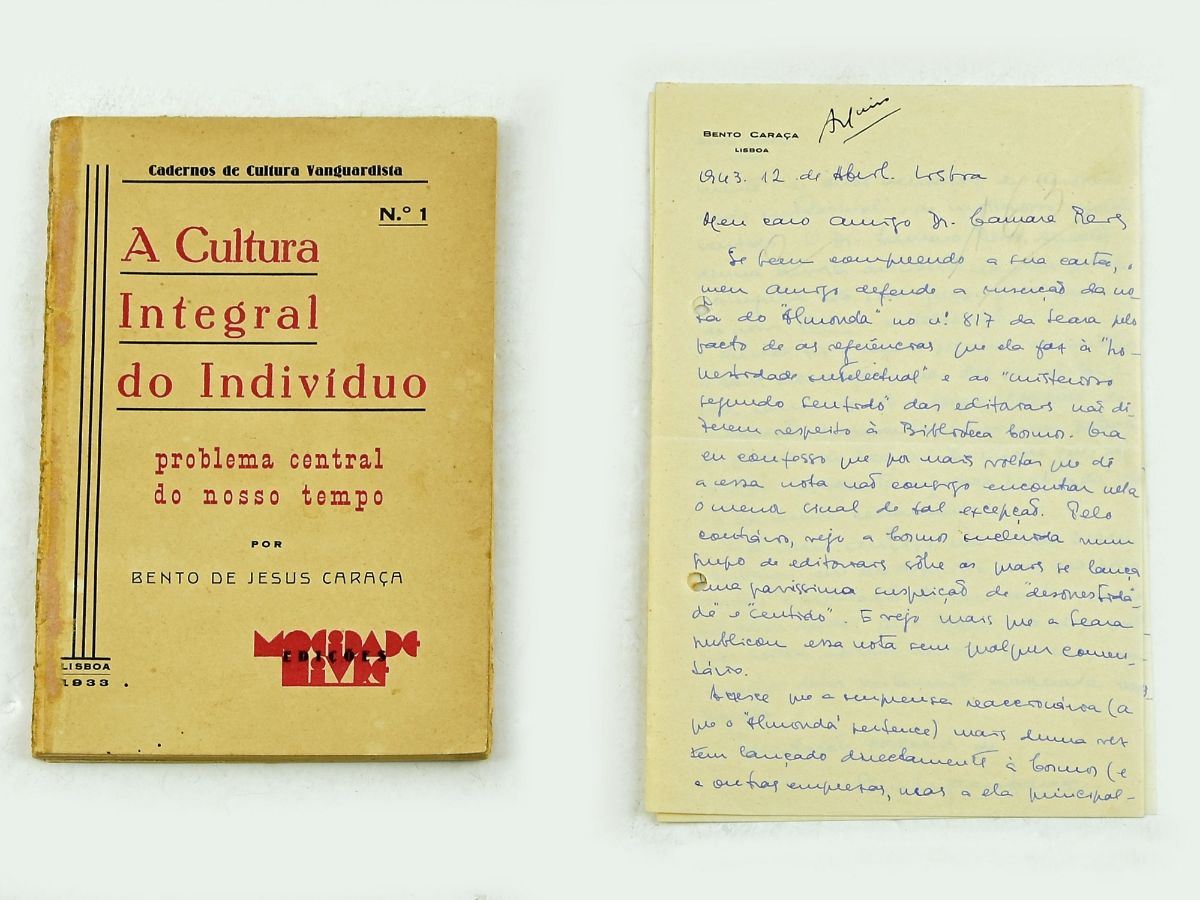 Cadernos de Cultura Vanguardista
N.º 1
A Cultura
Integral
do Indivíduo
problema central
do nosso tempo
POR
BENTO DE JESUS CARAÇA
MOCIDADE
EDIÇÕES
LIVRE
LISBOA
1933
BENTO CARAÇA
LISBOA
1943. 12 de Abril. Lisboa
Meu caro amigo Dr. Camara Reys
Se bem compreendo a sua carta, o
meu amigo defende a inserção da no-
ta do "Almonda" no n.º 817 da Seara pelo
facto de as referências que ela faz à "ho-
nestidade intelectual" e ao "misterioso
segundo sentido" das editoriais não di-
zerem respeito à Biblioteca Cosmos. Ora
eu confesso que por mais voltas que dê
a essa nota não consigo encontrar nela
o menor sinal de tal excepção. Pelo
contrário, vejo a Cosmos incluida num
grupo de editoriais sôbre as quais se lança
uma gravíssima suspeição de "desonestida-
de" e "sentido". E vejo mais que a Seara
publicou essa nota sem qualquer comen-
tário.
Acresce que a imprensa reaccionária (a
que o "Almonda" pertence) mais duma vez
tem lançado directamente à Cosmos (e
a outras empresas, mas a ela principal-